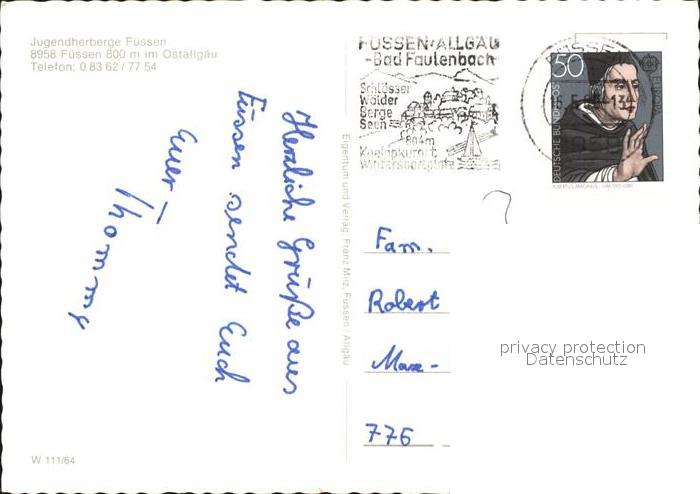 Jugendherberge Füssen
8958 Füssen 800 m im Ostallgäu
Telefon: 0 83 62 / 77 54
FÜSSEN/ALLGÄU
-Bad Faulenbach-
Schlösser
Wälder
Berge
Seen
804m
Kneippkurort
Wintersportplatz
FÜSSEN
50
DEUTSCHE BUNDESPOST
ALBERTUS MAGNUS
Herzliche Grüße aus
Füssen sendet Euch
Euer
Thommy
Eigentum und Verlag Franz Milz, Füssen / Allgäu
Fam.
Robert
776
privacy protection
Datenschutz
W 111/64